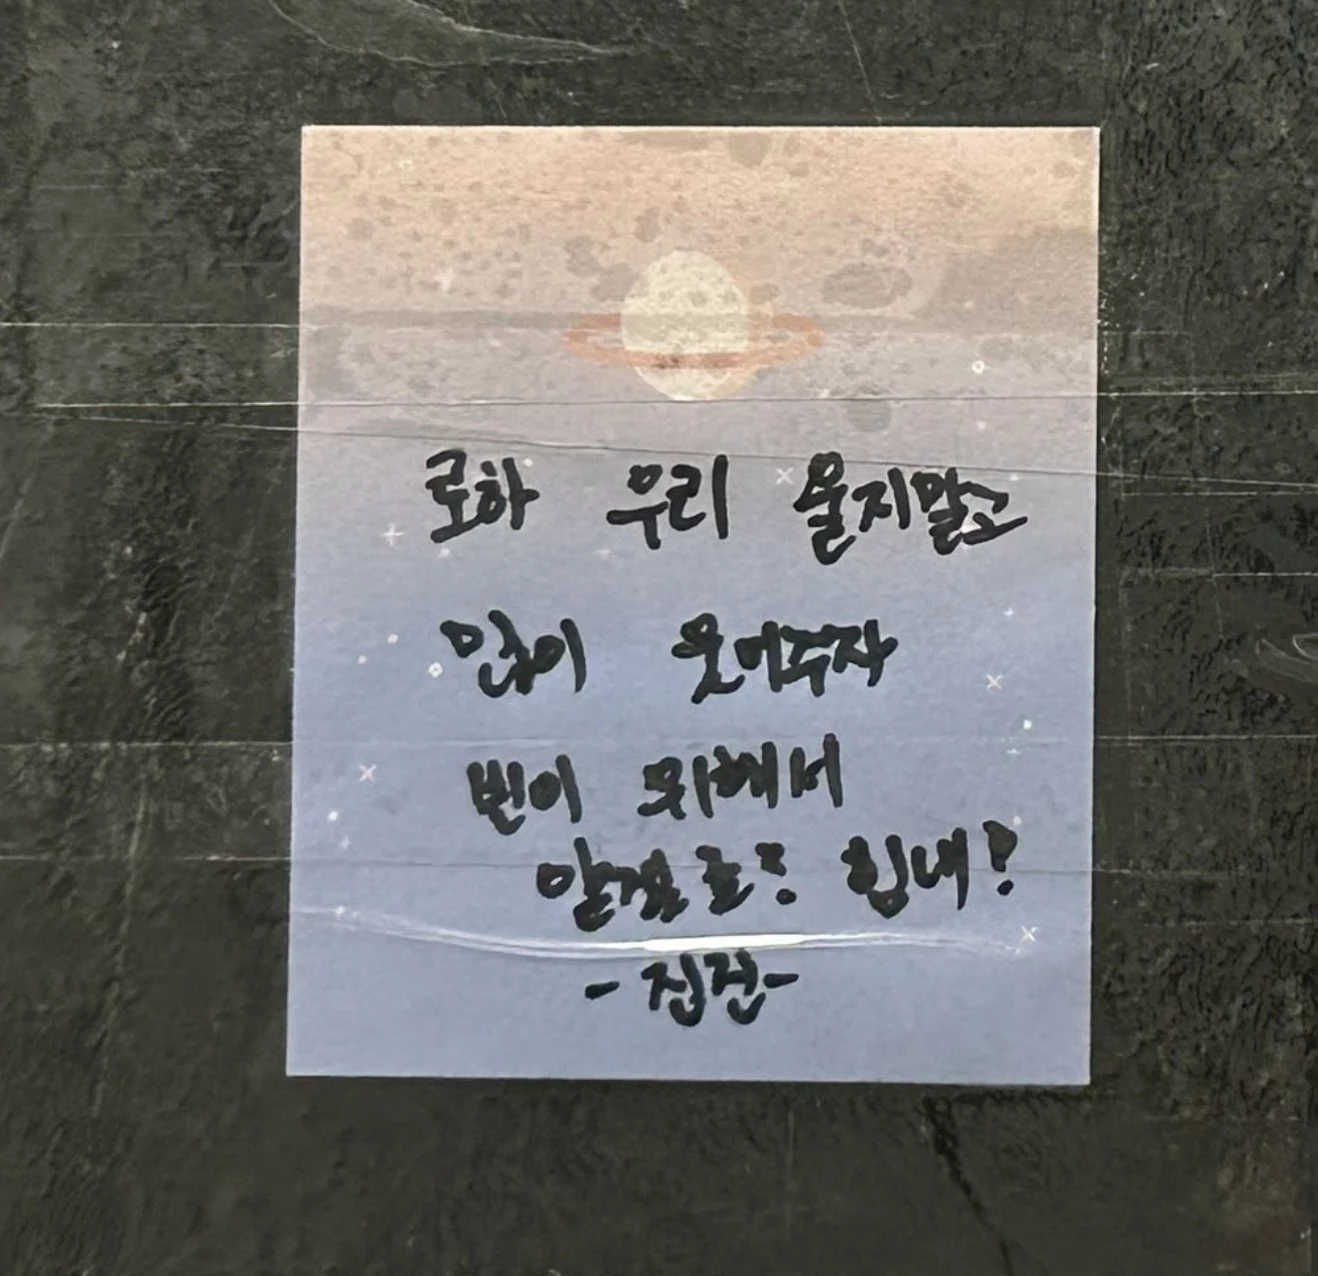 로하 우리 울지말고
많이 웃어주자
빈이 위해서
알겠죠? 힘내!
-진진-